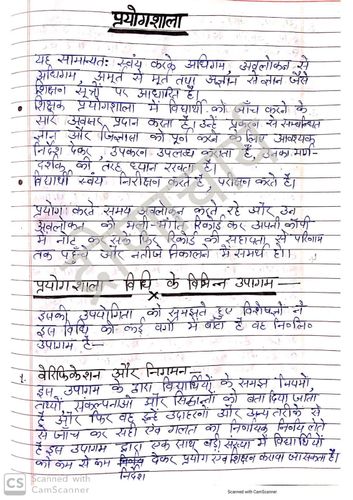 प्रयोगशाला
यह सामान्यतः स्वयं करके अधिगम, अवलोकन से
अधिगम, अमूर्त से मूर्त तथा अज्ञान से ज्ञान जैसे
शिक्षण सूत्रों पर आधारित है।
शिक्षक प्रयोगशाला में विद्यार्थी को जाँच करने के
सारे अवसर प्रदान करता है, उन्हें प्रकरण से सम्बन्धित
ज्ञान और जिज्ञासा को पूर्ण करने के लिए आवश्यक
निर्देश देकर, उपकरण उपलब्ध कराता है, उनका मार्ग-
दर्शक की तरह ध्यान रखता है।
विद्यार्थी स्वयं निरीक्षण करते है, परीक्षण करते हैं।
प्रयोग करते समय अवलोकन करते रहे और उन
अवलोकन को भली-भाँति रिकॉर्ड कर अपनी कॉपी
में नोट कर सके फिर रिकॉर्ड की सहायता से परिणाम
तक पहुँचे और नतीजे निकालने में समर्थ हो।
प्रयोगशाला विधि के विभिन्न उपागम—
इसकी उपयोगिता को समझते हुए विशेषज्ञों ने
इस विधि को कई वर्गों में बाँटा है वह निoलिo
उपागम है—
1. वेरिफिकेशन और निगमन—
इस उपागम के द्वारा विद्यार्थियों के समक्ष नियमों,
तथ्यों, संकल्पनाओं और सिद्धान्तों को बता दिया जाता
है और फिर वह इन्हें उदाहरणों और अन्य तरीके से
से जाँच कर सही एवं गलत का निर्णायक निर्णय लेते
है इस उपागम द्वारा एक साथ बड़ी संख्या में विद्यार्थियों
को कम से कम देकर प्रयोग एवं शिक्षण कराया जा सकता है।
निर्देश
CS Scanned with
CamScanner
Scanned with CamScanner